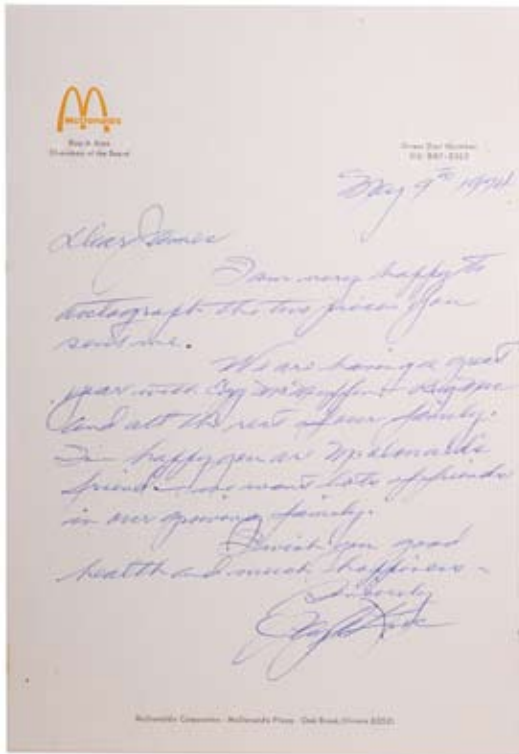 McDonald's
Ray A. Kroc
Chairman of the Board
Direct Dial Number
May 9th 1974
Dear James
I am very happy to
autograph the two pieces you
sent me.
We are having a great
year with Egg McMuffin
and all the rest of our family.
I'm happy you are McDonald's
friend - we want lots of friends
in our growing family.
I wish you good
health and much happiness -
Sincerely
Ray A. Kroc
McDonald's Corporation · McDonald's Plaza · Oak Brook, Illinois 60521